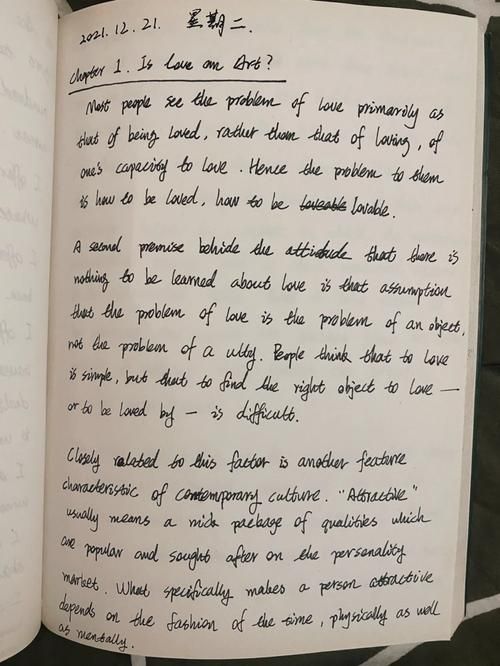 2021. 12. 21. 星期二.
Chapter 1. Is Love an Art?
Most people see the problem of love primarily as
that of being loved, rather than that of loving, of
one's capacity to love. Hence the problem to them
is how to be loved, how to be loveable lovable.
A second premise behide the attitude that there is
nothing to be learned about love is that assumption
that the problem of love is the problem of an object,
not the problem of a ulty. People think that to love
is simple, but that to find the right object to love —
or to be loved by — is difficult.
Closely related to this factor is another feature
characteristic of contemporary culture. "Attractive"
usually means a package of qualities which
are popular and sought after on the personality
market. What specifically makes a person attractive
depends on the fashion of the time, physically as well
as mentally.